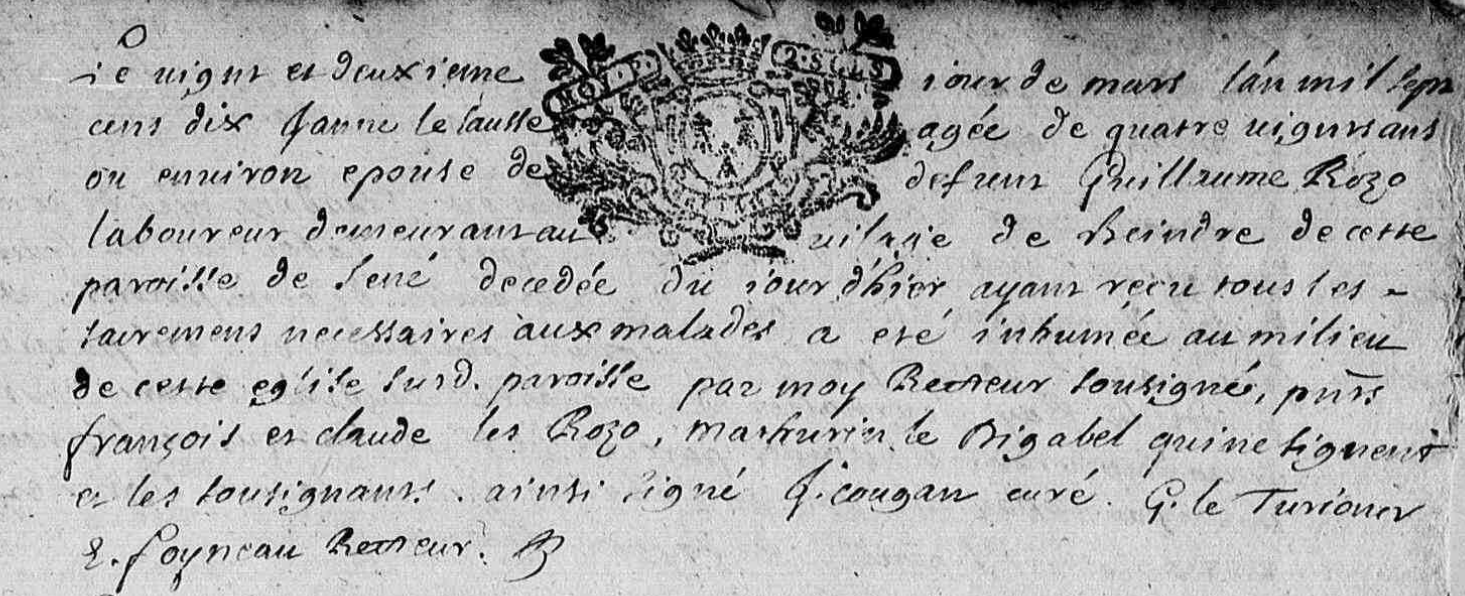 Le vignt et deuxieme MOY.P. 2.SOLS iour de mars l'an mil sept
cens dix Janne le sausse agée de quatre vignts ans
ou environ epouse de defunt Guillaume Rozo
laboureur demeurant au vilage de Beindre de cette
paroisse de Sené decedée du iour d'hier ayant reçu tous les
sacremens necessaires aux malades a eté inhumée au milieu
de cette eglise susd. paroisse par moy Recteur sousigné, pnts
françois et claude les Rozo, Mathurin le Digabel qui ne signent
et les sousignants. ainsi signé J. cougan curé. G. le Turioner
E. foyneau Recteur.